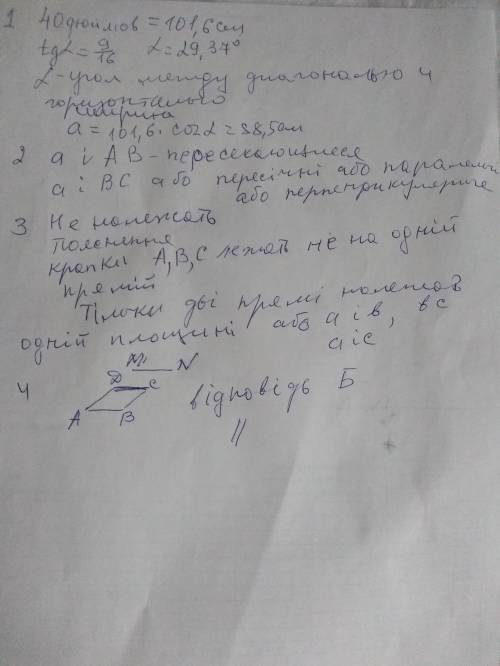 1 40 дюймов = 101,6 см
tgα = 9/16 α = 29,37°
α - угол между диагональю и
горизонталью
ширина
a = 101,6 · cosα = 88,5 см
2 a і AB - пересекающиеся
a і BC або пересічні або паралельні
або перпендикулярные
3 Не належать
Пояснення
крапки A, B, C лежать не на одній
прямій
Тільки дві прямі належать
одній площині або a і в, вс
a і c
4 M N
D C
A B
відповідь Б
||